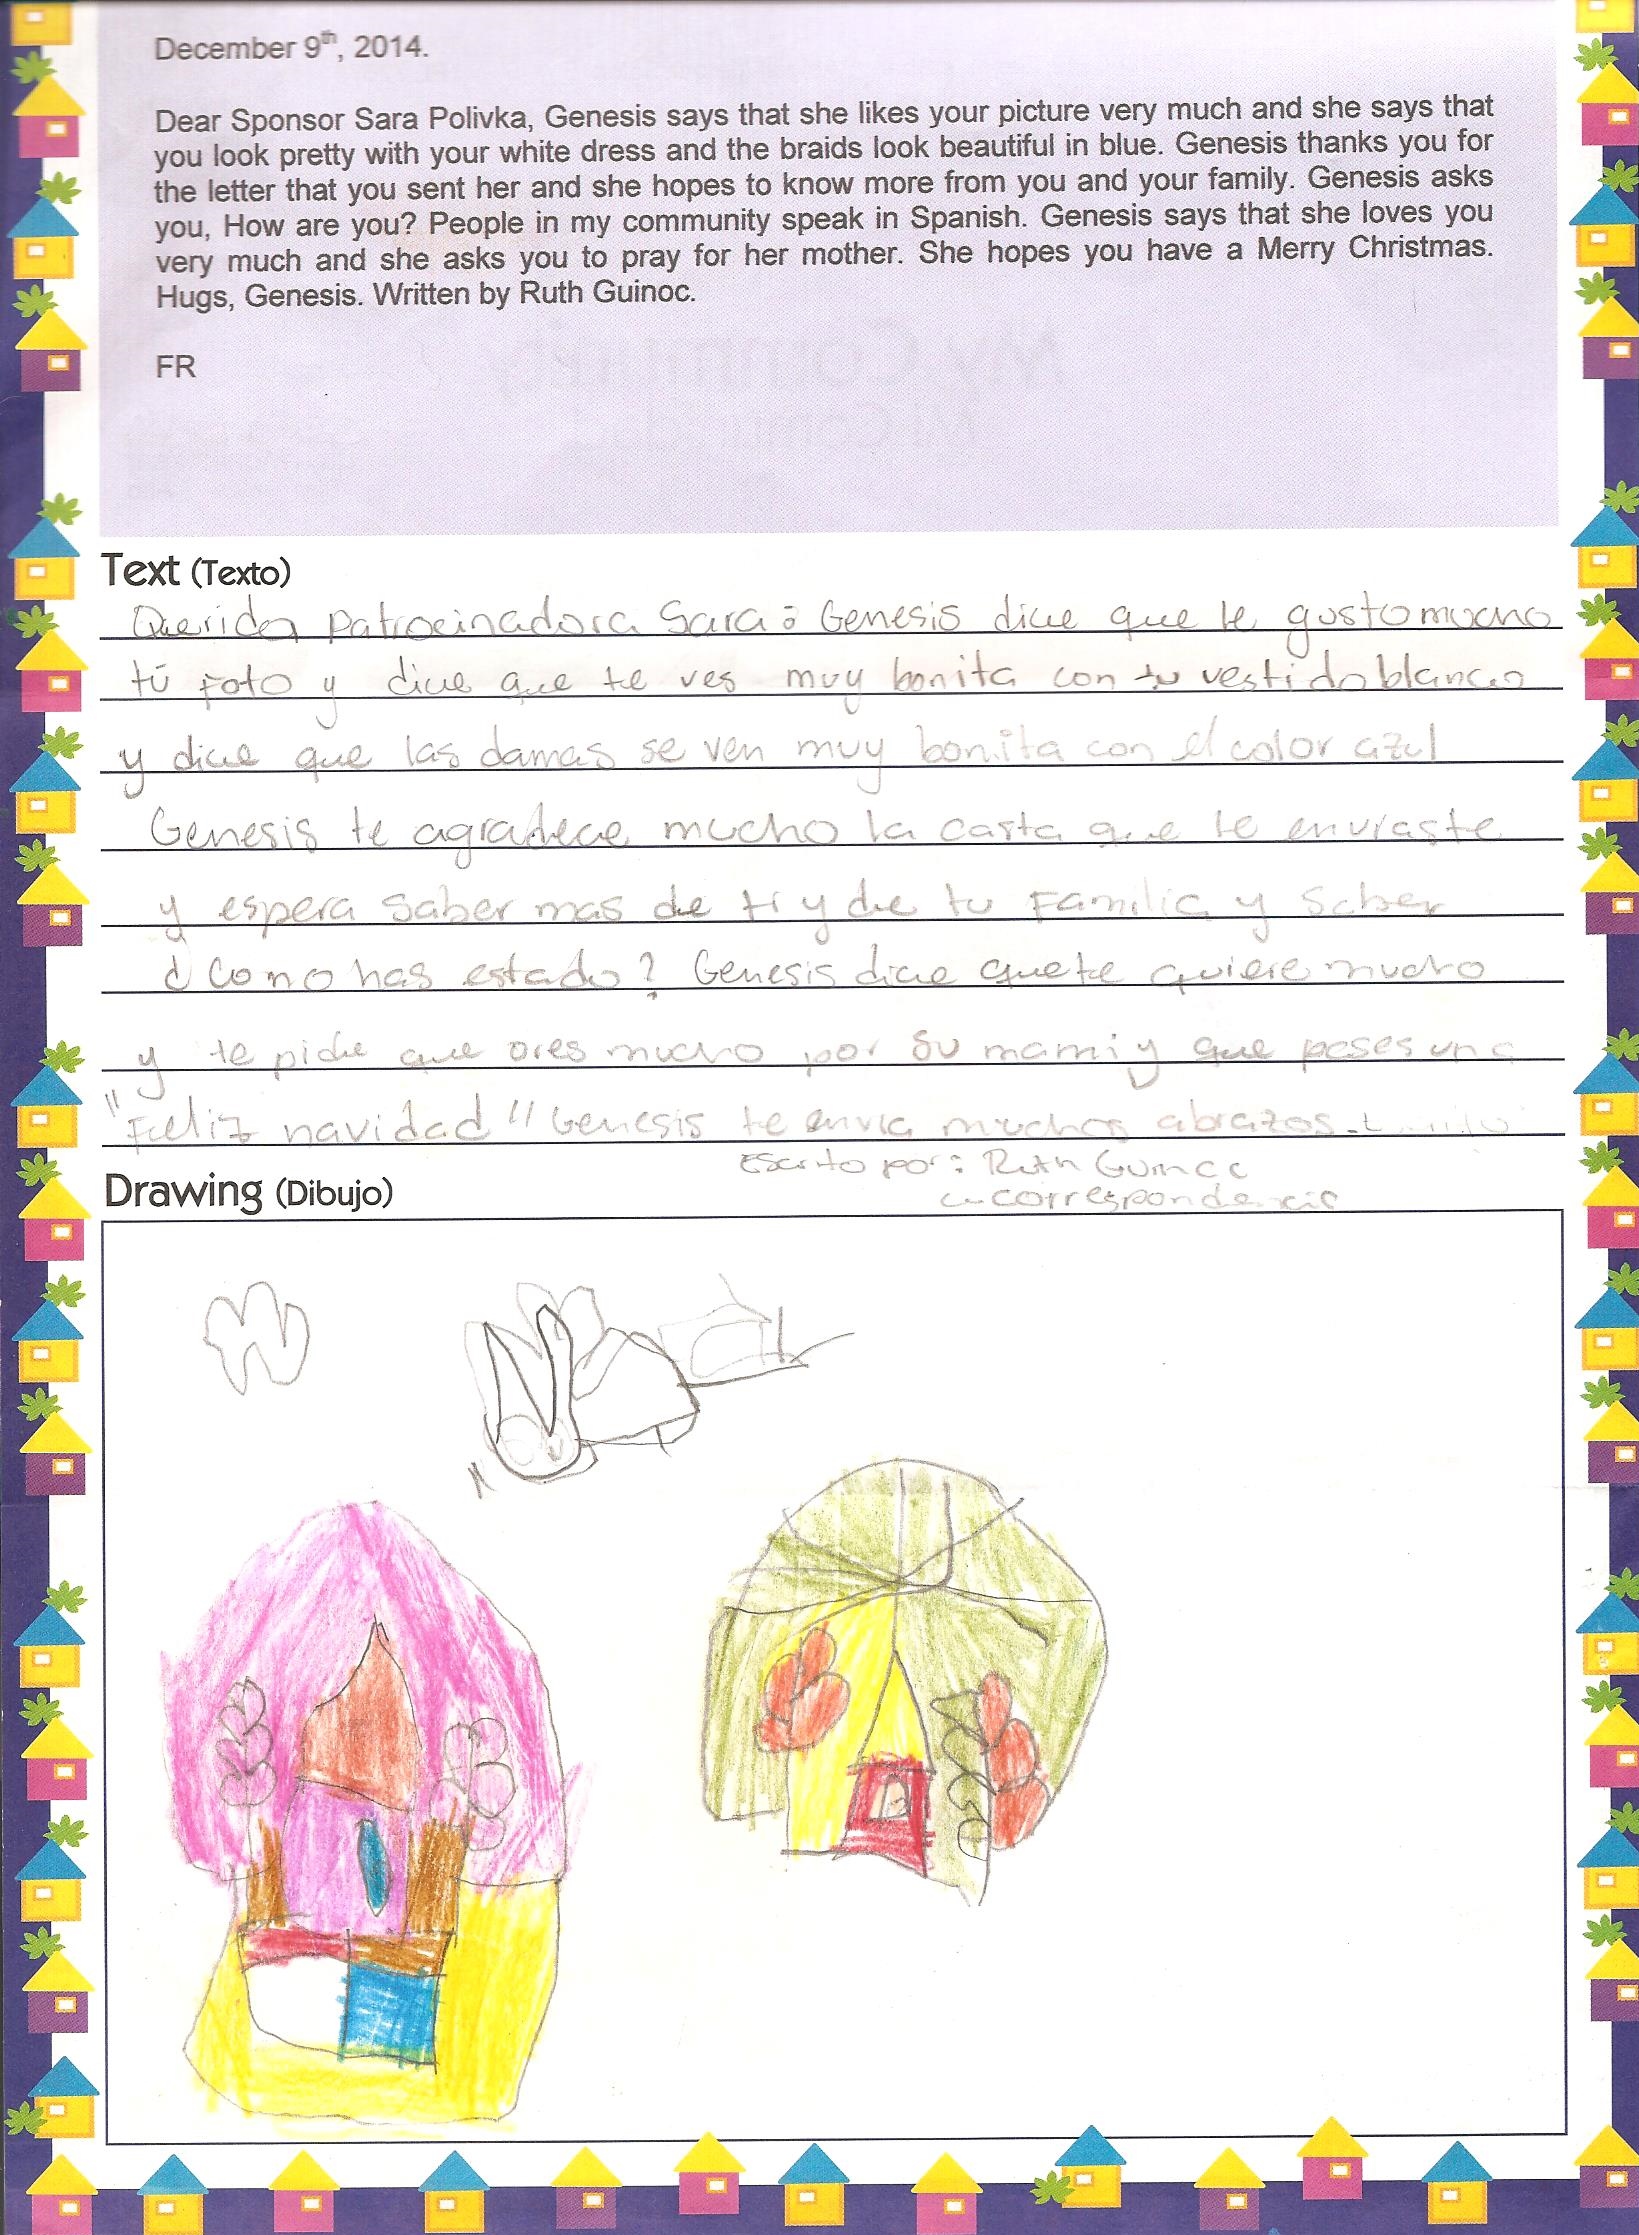 December 9th, 2014.
Dear Sponsor Sara Polivka, Genesis says that she likes your picture very much and she says that
you look pretty with your white dress and the braids look beautiful in blue. Genesis thanks you for
the letter that you sent her and she hopes to know more from you and your family. Genesis asks
you, How are you? People in my community speak in Spanish. Genesis says that she loves you
very much and she asks you to pray for her mother. She hopes you have a Merry Christmas.
Hugs, Genesis. Written by Ruth Guinoc.
FR
Text (Texto)
Querida patrocinadora Sara: Genesis dice que le gusto mucho
tú foto y dice que te ves muy bonita con tu vestido blanco
y dice que las damas se ven muy bonita con el color azul
Genesis te agradece mucho la carta que le enviaste
y espera saber mas de ti y de tu Familia y saber
¿Como has estado? Genesis dice que te quiere mucho
y te pide que ores mucho por su mami y que pases una
"Feliz navidad" Genesis te envia muchos abrazos.
Escrito por: Ruth Guinoc
correspondencia
Drawing (Dibujo)